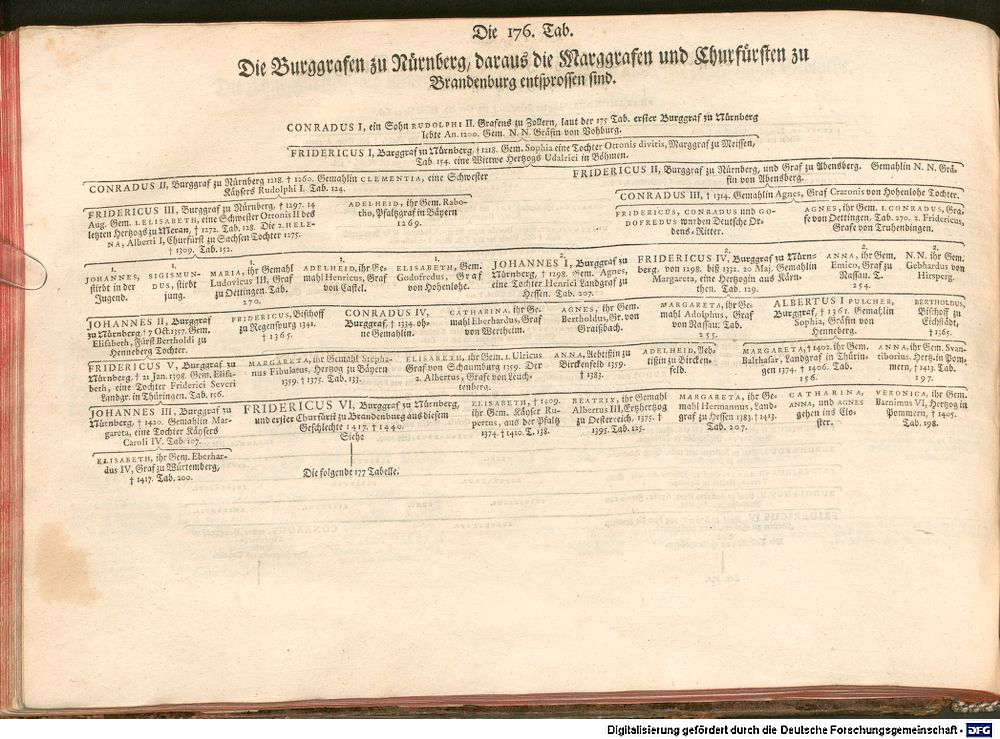 Die 176. Tab.
Die Burggrafen zu Nürnberg, daraus die Marggrafen und Churfürsten zu
Brandenburg entsprossen sind.
CONRADUS I, ein Sohn RUDOLPHI II. Grafens zu Zollern, laut der 175 Tab. erster Burggraf zu Nürnberg
lebte An. 1200. Gem. N. N. Gräfin von Vohburg.
FRIDERICUS I, Burggraf zu Nürnberg, † 1218. Gem. Sophia eine Tochter Ottonis divitis, Marggraf zu Meissen,
Tab. 154. eine Wittwe Hertzogs Udalrici in Böhmen.
CONRADUS II, Burggraf zu Nürnberg 1218. † 1260. Gemahlin CLEMENTIA, eine Schwester
Käysers Rudolphi I. Tab. 124.
FRIDERICUS II, Burggraf zu Nürnberg, und Graf zu Abensberg. Gemahlin N. N. Grä-
fin von Abensberg.
FRIDERICUS III, Burggraf zu Nürnberg, † 1297. 14
Aug. Gem. 1. ELISABETH, eine Schwester Ottonis II des
letzten Hertzogs zu Meran, † 1272. Tab. 128. Die 2. HELE-
NA, Alberti I, Churfürst zu Sachsen Tochter 1275.
† 1309. Tab. 152.
ADELHEID, ihr Gem. Rabo-
tho, Pfaltzgraf in Bäyern
1269.
CONRADUS III, † 1314. Gemahlin Agnes, Graf Cratonis von Hohenlohe Tochter.
FRIDERICUS, CONRADUS und GO-
DOFREDUS wurden Deutsche Or-
dens-Ritter.
AGNES, ihr Gem. 1. CONRADUS, Gra-
fe von Oettingen, Tab. 270. 2. Fridericus,
Grafe von Truhendingen.
1.
JOHANNES,
stirbt in der
Jugend.
1.
SIGISMUN-
DUS, stirbt
jung.
1.
MARIA, ihr Gemahl
Ludovicus III, Graf
zu Oettingen. Tab.
270.
1.
ADELHEID, ihr Ge-
mahl Henricus, Graf
von Castel.
1.
ELISABETH, Gem.
Godofredus, Graf
von Hohenlohe.
2.
JOHANNES I, Burggraf zu
Nürnberg, † 1298. Gem. Agnes,
eine Tochter Henrici Landgraf zu
Hessen. Tab. 207.
2.
FRIDERICUS IV, Burggraf zu Nürn-
berg, von 1298. biß 1332. 20 Maj. Gemahlin
Margareta, eine Hertzogin aus Kärn-
then. Tab. 129.
2.
ANNA, ihr Gem.
Emico, Graf zu
Nassau. T.
254.
2.
N. N. ihr Gem.
Gebhardus von
Hirsperg.
JOHANNES II, Burggraf
zu Nürnberg, † 7 Oct. 1357. Gem.
Elisabeth, Fürst Bertholdi zu
Henneberg Tochter.
FRIDERICUS, Bischoff
zu Regenspurg 1341.
† 1365.
CONRADUS IV,
Burggraf, † 1334. oh-
ne Gemahlin.
CATHARINA, ihr Ge-
mahl Eberhardus, Graf
von Wertheim.
AGNES, ihr Gem.
Bertholdus, Gr. von
Graißbach.
MARGARETA, ihr Ge-
mahl Adolphus, Graf
von Nassau; Tab.
255.
ALBERTUS I PULCHER,
Burggraf, † 1361. Gemahlin
Sophia, Gräfin von
Henneberg.
BERTHOLDUS,
Bischoff zu
Eichstädt,
† 1365.
FRIDERICUS V, Burggraf zu
Nürnberg, † 21 Jan. 1398. Gem. Elisa-
beth, eine Tochter Friderici Severi
Landgr. in Thüringen. Tab. 156.
MARGARETA, ihr Gemahl Stepha-
nus Fibulatus, Hertzog zu Bäyern
1359. † 1375. Tab. 133.
ELISABETH, ihr Gem. 1. Ulricus
Graf von Schaumburg 1359. Der
2. Albertus, Grafe von Leuch-
tenberg.
ANNA, Aebtißin zu
Birckenfeld 1359.
† 1383.
ADELHEID, Aeb-
tißin zu Bircken-
feld.
MARGARETA, † 1402. ihr Gem.
Balthasar, Landgraf in Thürin-
gen 1374. † 1406. Tab.
156.
ANNA, ihr Gem. Svan-
tiborius, Hertz. in Pom-
mern, † 1413. Tab.
197.
JOHANNES III, Burggraf zu
Nürnberg, † 1420. Gemahlin Mar-
gareta, eine Tochter Käysers
Caroli IV. Tab. 107.
FRIDERICUS VI, Burggraf zu Nürnberg,
und erster Churfürst zu Brandenburg aus diesem
Geschlechte 1417. † 1440.
Siehe
ELISABETH, † 1409.
ihr Gem. Käyser Ru-
pertus, aus der Pfaltz
1374. † 1410. T. 138.
BEATRIX, ihr Gemahl
Albertus III, Ertzhertzog
zu Oesterreich, 1375. †
1395. Tab. 125.
MARGARETA, ihr Ge-
mahl Hermannus, Land-
graf zu Hessen 1383. † 1413.
Tab. 207.
CATHARINA,
ANNA, und AGNES
gehen ins Clo-
ster.
VERONICA, ihr Gem.
Barnimus VI, Hertzog in
Pommern, † 1405.
Tab. 198.
ELISABETH, ihr Gem. Eberhar-
dus IV, Graf zu Würtemberg,
† 1417. Tab. 200.
Die folgende 177 Tabelle.
Digitalisierung gefördert durch die Deutsche Forschungsgemeinschaft - DFG